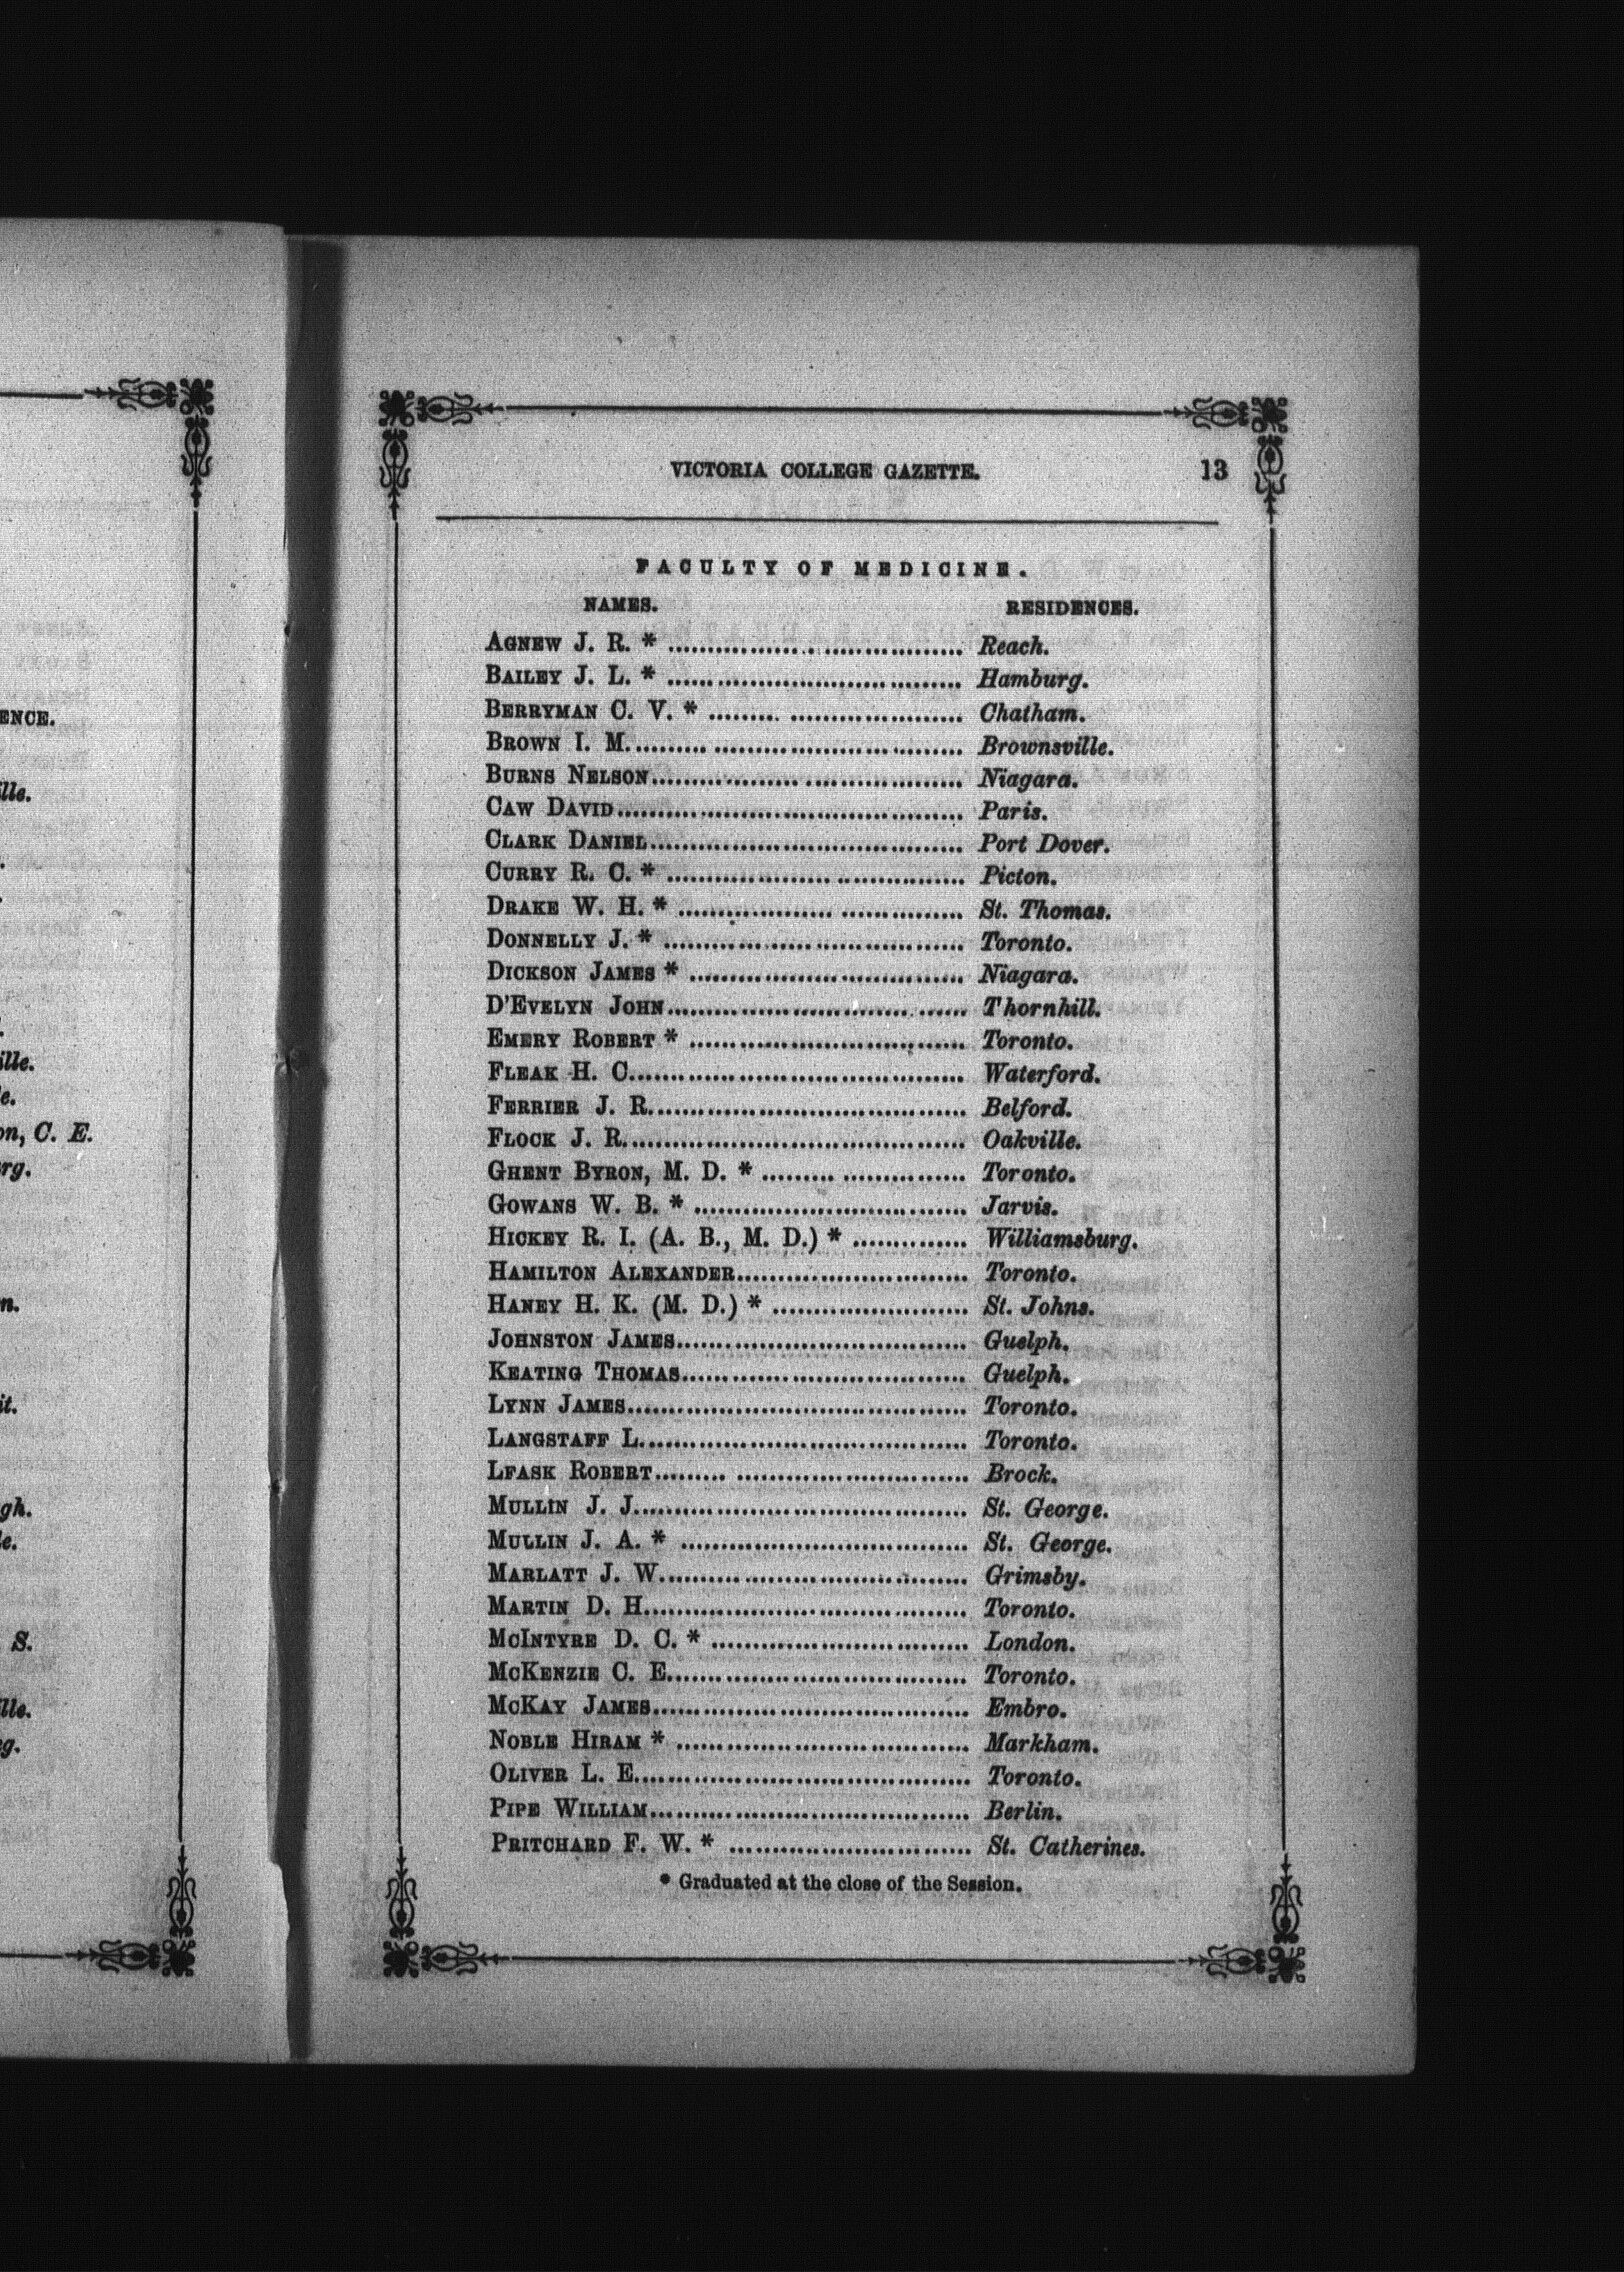 ENCE.
lle.
ille.
le.
on, C. E.
rg.
n.
it.
gh.
le.
S.
lle.
g.
VICTORIA COLLEGE GAZETTE. 13
FACULTY OF MEDICINE.
NAMES. RESIDENCES.
AGNEW J. R. * .......... Reach.
BAILEY J. L. * .......... Hamburg.
BERRYMAN C. V. * .......... Chatham.
BROWN I. M. .......... Brownsville.
BURNS NELSON .......... Niagara.
CAW DAVID .......... Paris.
CLARK DANIEL .......... Port Dover.
CURRY R. C. * .......... Picton.
DRAKE W. H. * .......... St. Thomas.
DONNELLY J. * .......... Toronto.
DICKSON JAMES * .......... Niagara.
D'EVELYN JOHN .......... Thornhill.
EMERY ROBERT * .......... Toronto.
FLEAK H. C. .......... Waterford.
FERRIER J. R. .......... Belford.
FLOCK J. R. .......... Oakville.
GHENT BYRON, M. D. * .......... Toronto.
GOWANS W. B. * .......... Jarvis.
HICKEY R. I. (A. B., M. D.) * .......... Williamsburg.
HAMILTON ALEXANDER .......... Toronto.
HANEY H. K. (M. D.) * .......... St. Johns.
JOHNSTON JAMES .......... Guelph.
KEATING THOMAS .......... Guelph.
LYNN JAMES .......... Toronto.
LANGSTAFF L. .......... Toronto.
LFASK ROBERT .......... Brock.
MULLIN J. J. .......... St. George.
MULLIN J. A. * .......... St. George.
MARLATT J. W. .......... Grimsby.
MARTIN D. H. .......... Toronto.
MCINTYRE D. C. * .......... London.
MCKENZIE C. E. .......... Toronto.
MCKAY JAMES .......... Embro.
NOBLE HIRAM * .......... Markham.
OLIVER L. E. .......... Toronto.
PIPE WILLIAM .......... Berlin.
PRITCHARD F. W. * .......... St. Catherines.
* Graduated at the close of the Session.